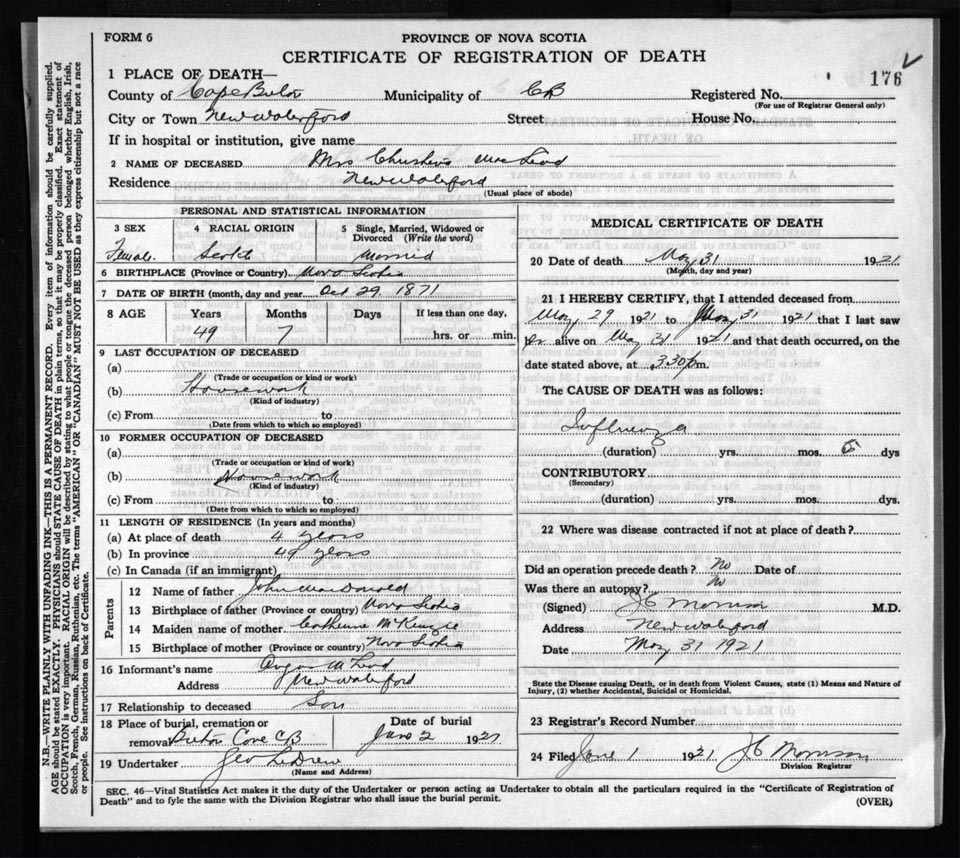 FORM 6
PROVINCE OF NOVA SCOTIA
CERTIFICATE OF REGISTRATION OF DEATH
176
1 PLACE OF DEATH—
County of Cape Breton Municipality of CB Registered No.
(For use of Registrar General only)
City or Town New Waterford Street House No.
If in hospital or institution, give name
2 NAME OF DECEASED Mrs MacLeod
Residence New Waterford
(Usual place of abode)
PERSONAL AND STATISTICAL INFORMATION
3 SEX 4 RACIAL ORIGIN 5 Single, Married, Widowed or Divorced (Write the word)
Female Scotch Married
6 BIRTHPLACE (Province or Country) Nova Scotia
7 DATE OF BIRTH (month, day and year Oct 29, 1871
8 AGE Years Months Days If less than one day,
49 7 hrs. or min.
9 LAST OCCUPATION OF DECEASED
(a)
(Trade or occupation or kind or work)
(b) Housework
(Kind of industry)
(c) From to
(Date from which to which so employed)
10 FORMER OCCUPATION OF DECEASED
(a)
(Trade or occupation or kind or work)
(b) Housework
(Kind of industry)
(c) From to
(Date from which to which so employed)
11 LENGTH OF RESIDENCE (In years and months)
(a) At place of death 4 years
(b) In province 49 years
(c) In Canada (if an immigrant)
Parents
12 Name of father John MacDonald
13 Birthplace of father (Province or country) Nova Scotia
14 Maiden name of mother Catherine McKenzie
15 Birthplace of mother (Province or country) Nova Scotia
16 Informant's name Angus McLeod
Address New Waterford
17 Relationship to deceased Son
18 Place of burial, cremation or Date of burial
removal Breton Cove CB June 2 1921
19 Undertaker Geo LeDrew
(Name and Address)
MEDICAL CERTIFICATE OF DEATH
20 Date of death May 31 1921
(Month, day and year)
21 I HEREBY CERTIFY, that I attended deceased from
May 29 1921 to May 31 1921 that I last saw
her alive on May 31 1921 and that death occurred, on the
date stated above, at 3.30 p m.
The CAUSE OF DEATH was as follows:
Influenza
(duration) yrs. mos. dys
CONTRIBUTORY
(Secondary)
(duration) yrs. mos. dys.
22 Where was disease contracted if not at place of death?
Did an operation precede death? No Date of
Was there an autopsy? No
(Signed) J C Morrison M.D.
Address New Waterford
Date May 31 1921
State the Disease causing Death, or in death from Violent Causes, state (1) Means and Nature of
Injury, (2) whether Accidental, Suicidal or Homicidal.
23 Registrar's Record Number
24 Filed June 1 1921 J C Morrison
Division Registrar
SEC. 46—Vital Statistics Act makes it the duty of the Undertaker or person acting as Undertaker to obtain all the particulars required in the "Certificate of Registration of
Death" and to fyle the same with the Division Registrar who shall issue the burial permit. (OVER)
N.B.—WRITE PLAINLY WITH UNFADING INK—THIS IS A PERMANENT RECORD. Every item of information should be carefully supplied.
AGE should be stated EXACTLY. PHYSICIANS should STATE CAUSE OF DEATH in plain terms, so that it may be properly classified. Exact statement of
OCCUPATION is very important. RACIAL ORIGIN will be described by stating to what people or tongue the deceased person belonged, whether English, Irish,
Scotch, French, German, Russian, Ruthenian, etc. The terms "AMERICAN" OR "CANADIAN" MUST NOT BE USED as they express citizenship but not a race
or people. See instructions on back of Certificate.